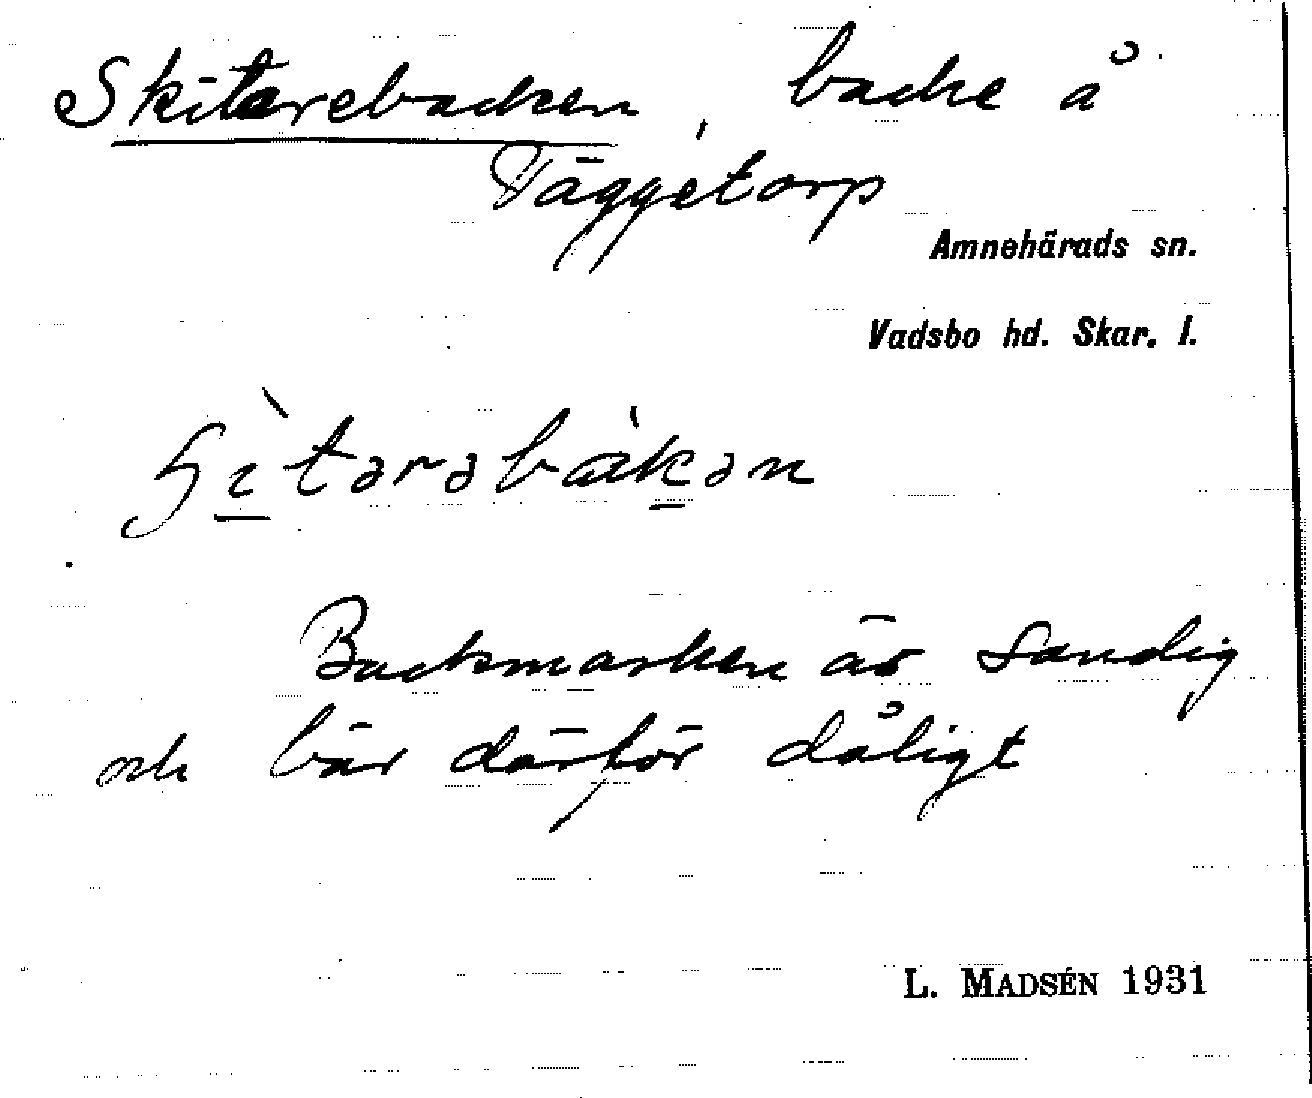 Skitarebacken, backe å
Täggetorp
Amnehärads sn.
Vadsbo hd. Skar. l.
ʃì̠tərəbàk̠ən
Backmarken är sandig
och bär därför dåligt
L. MADSÉN 1931